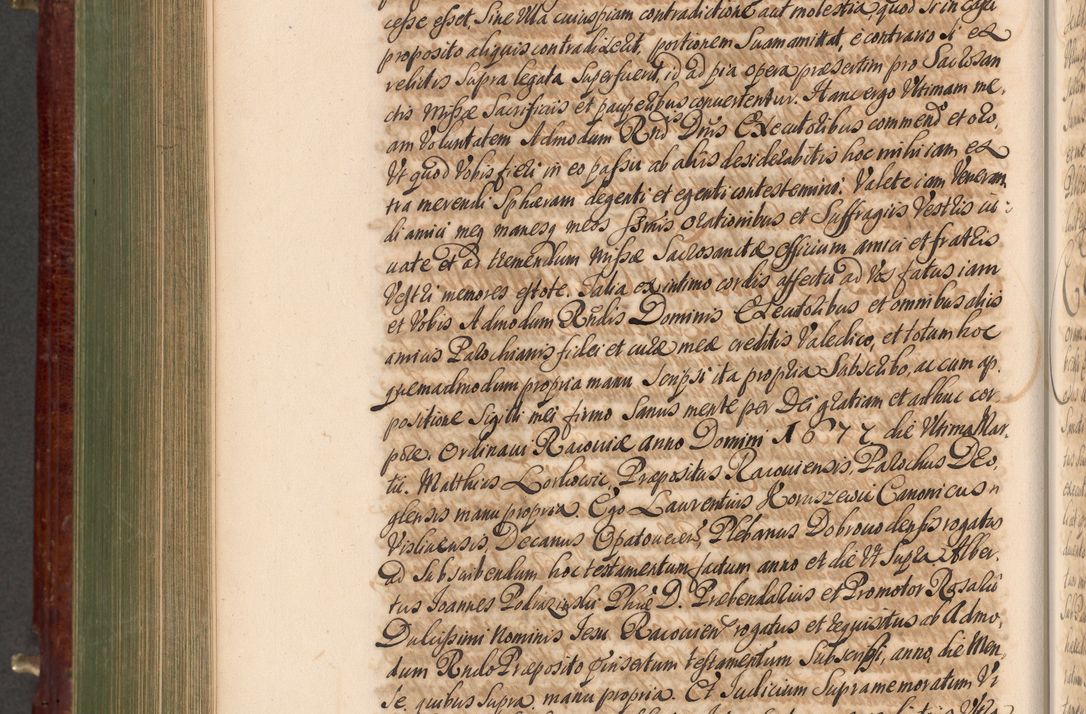 cesse esset, Sine Ulla cuiuspiam contradictione aut molestia, quod si in casu
proposito aliquis contradixerit, portionem Suam amittat, e contrario si ex
relictis Supra legata Superfuerit, id ad pia opera præsertim pro Sacrosan
ctis Missæ Sacrificiis et pauperibus convertentur. Hanc ergo Ultimam me,
am Voluntatem Admodum Rndis Dnis Executoribus commendo et oro,
Ut quod Vobis fieri in eo passu ab aliis desiderabitis hoc mihi iam ex
tra merendi Sphæram degenti et egenti contestemini. Valete iam Veneran
di amici mei, manesq meos piis orationibus et Suffragiis Vestris iu:
uate et ad tremendum Missæ Sacrosanctæ officium amici et fratris
Vestri memores estote. Talia ex intimo cordis affectu ad Vos fatus iam
et Vobis Admodum Rndis Dominis Executoribus et omnibus aliis
amicis Parochianis fidei et curæ meæ creditis Valedico, et totum hoc
quemadmodum propria manu scripsi ita propria Subscribo, ac cum ap,
positione Sigilli mei firmo Sanus mente per Dei gratiam et adhuc cor,
pore. Ordinavi Racoviæ anno Domini 1677 die Ultima Mar,
tii. Matthias Præpositus Racouiensis, Parochus Deo,
glensis manu propria. Ego Laurentius Koruszewic Canonicus
Visliciensis, Decanus Opatouiens, Plebanus Dobrouodensis rogatus
ad Subscribendum hoc testamentum factum anno et die Ut Supra. Alber,
tus Joannes Podrazinski Phiæ D. Præbendarius et Promotor Rosarii
Dulcissimi Nominis Jesu Racouien rogatus et requisitus ab Admo,
dum Rndo Præposito insertum testamentum Subscripsi, anno, die Men,
se, quibus Supra, manu propria. Et Judicium Supra memoratum Vi